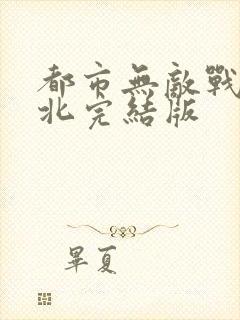 都市無敵戰
北完結版
畢夏